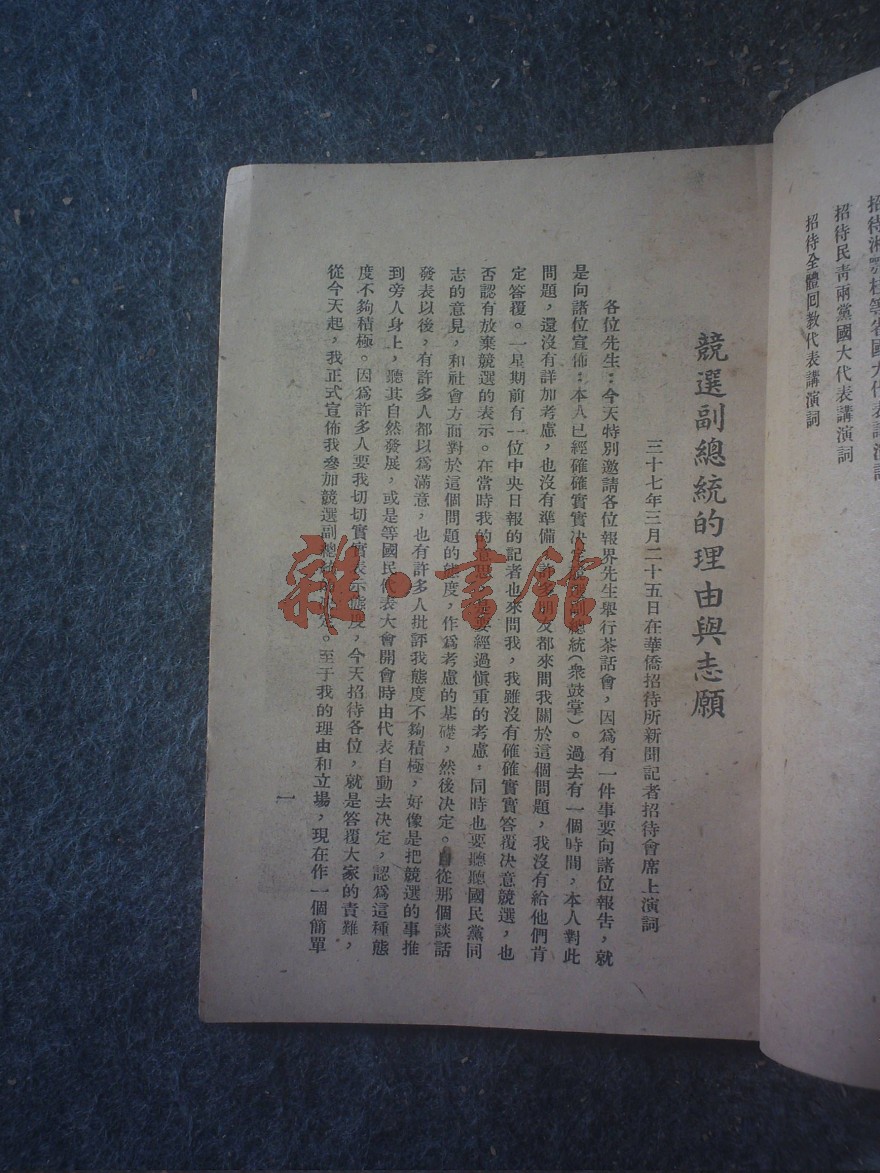 招待民青兩黨國大代表講演詞
招待全體回教代表講演詞
競選副總統的理由與志願
三十七年三月二十五日在華僑招待所新聞記者招待會席上演詞
各位先生：今天特別邀請各位報界先生舉行茶話會，因爲有一件事要向諸位報告，就
是向諸位宣佈：本人已經確確實實決定競選副總統（衆鼓掌）。過去有一個時間，本人對此
問題，還沒有詳加考慮，也沒有準備，許多朋友都來問我關於這個問題，我沒有給他們肯
定答覆。一星期前有一位中央日報的記者也來問我，我雖沒有確確實實答覆決意競選，也
否認有放棄競選的表示。在當時我的意思是要經過愼重的考慮，同時也要聽聽國民黨同
志的意見，和社會方面對於這個問題的態度，作爲考慮的基礎，然後決定。自從那個談話
發表以後，有許多人都以爲滿意，也有許多人批評我態度不夠積極，好像是把競選的事推
到旁人身上，聽其自然發展，或是等國民代表大會開會時由代表自動去決定，認爲這種態
度不夠積極。因爲許多人要我切切實實表示態度，今天招待各位，就是答覆大家的責難，
從今天起，我正式宣佈我參加競選副總統的決定。至于我的理由和立場，現在作一個簡單
一
雜·書館